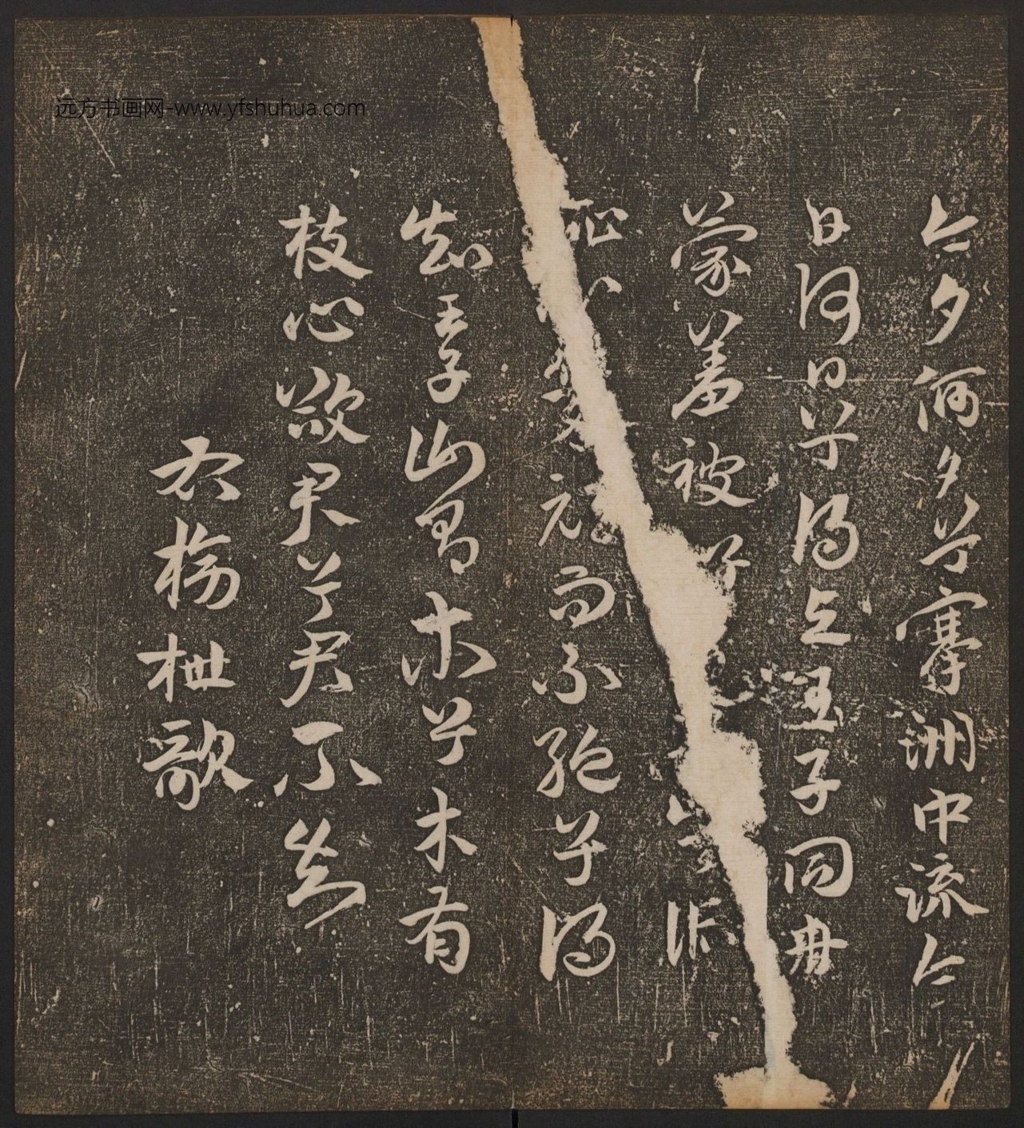 今夕何夕兮搴洲中流今
日何日兮得與王子同舟
蒙羞被好詬
恥心而不絶兮得
知王子山有木兮木有
枝心欲君兮君不知
右榜枻歌
远方书画网-www.yfshuhua.com